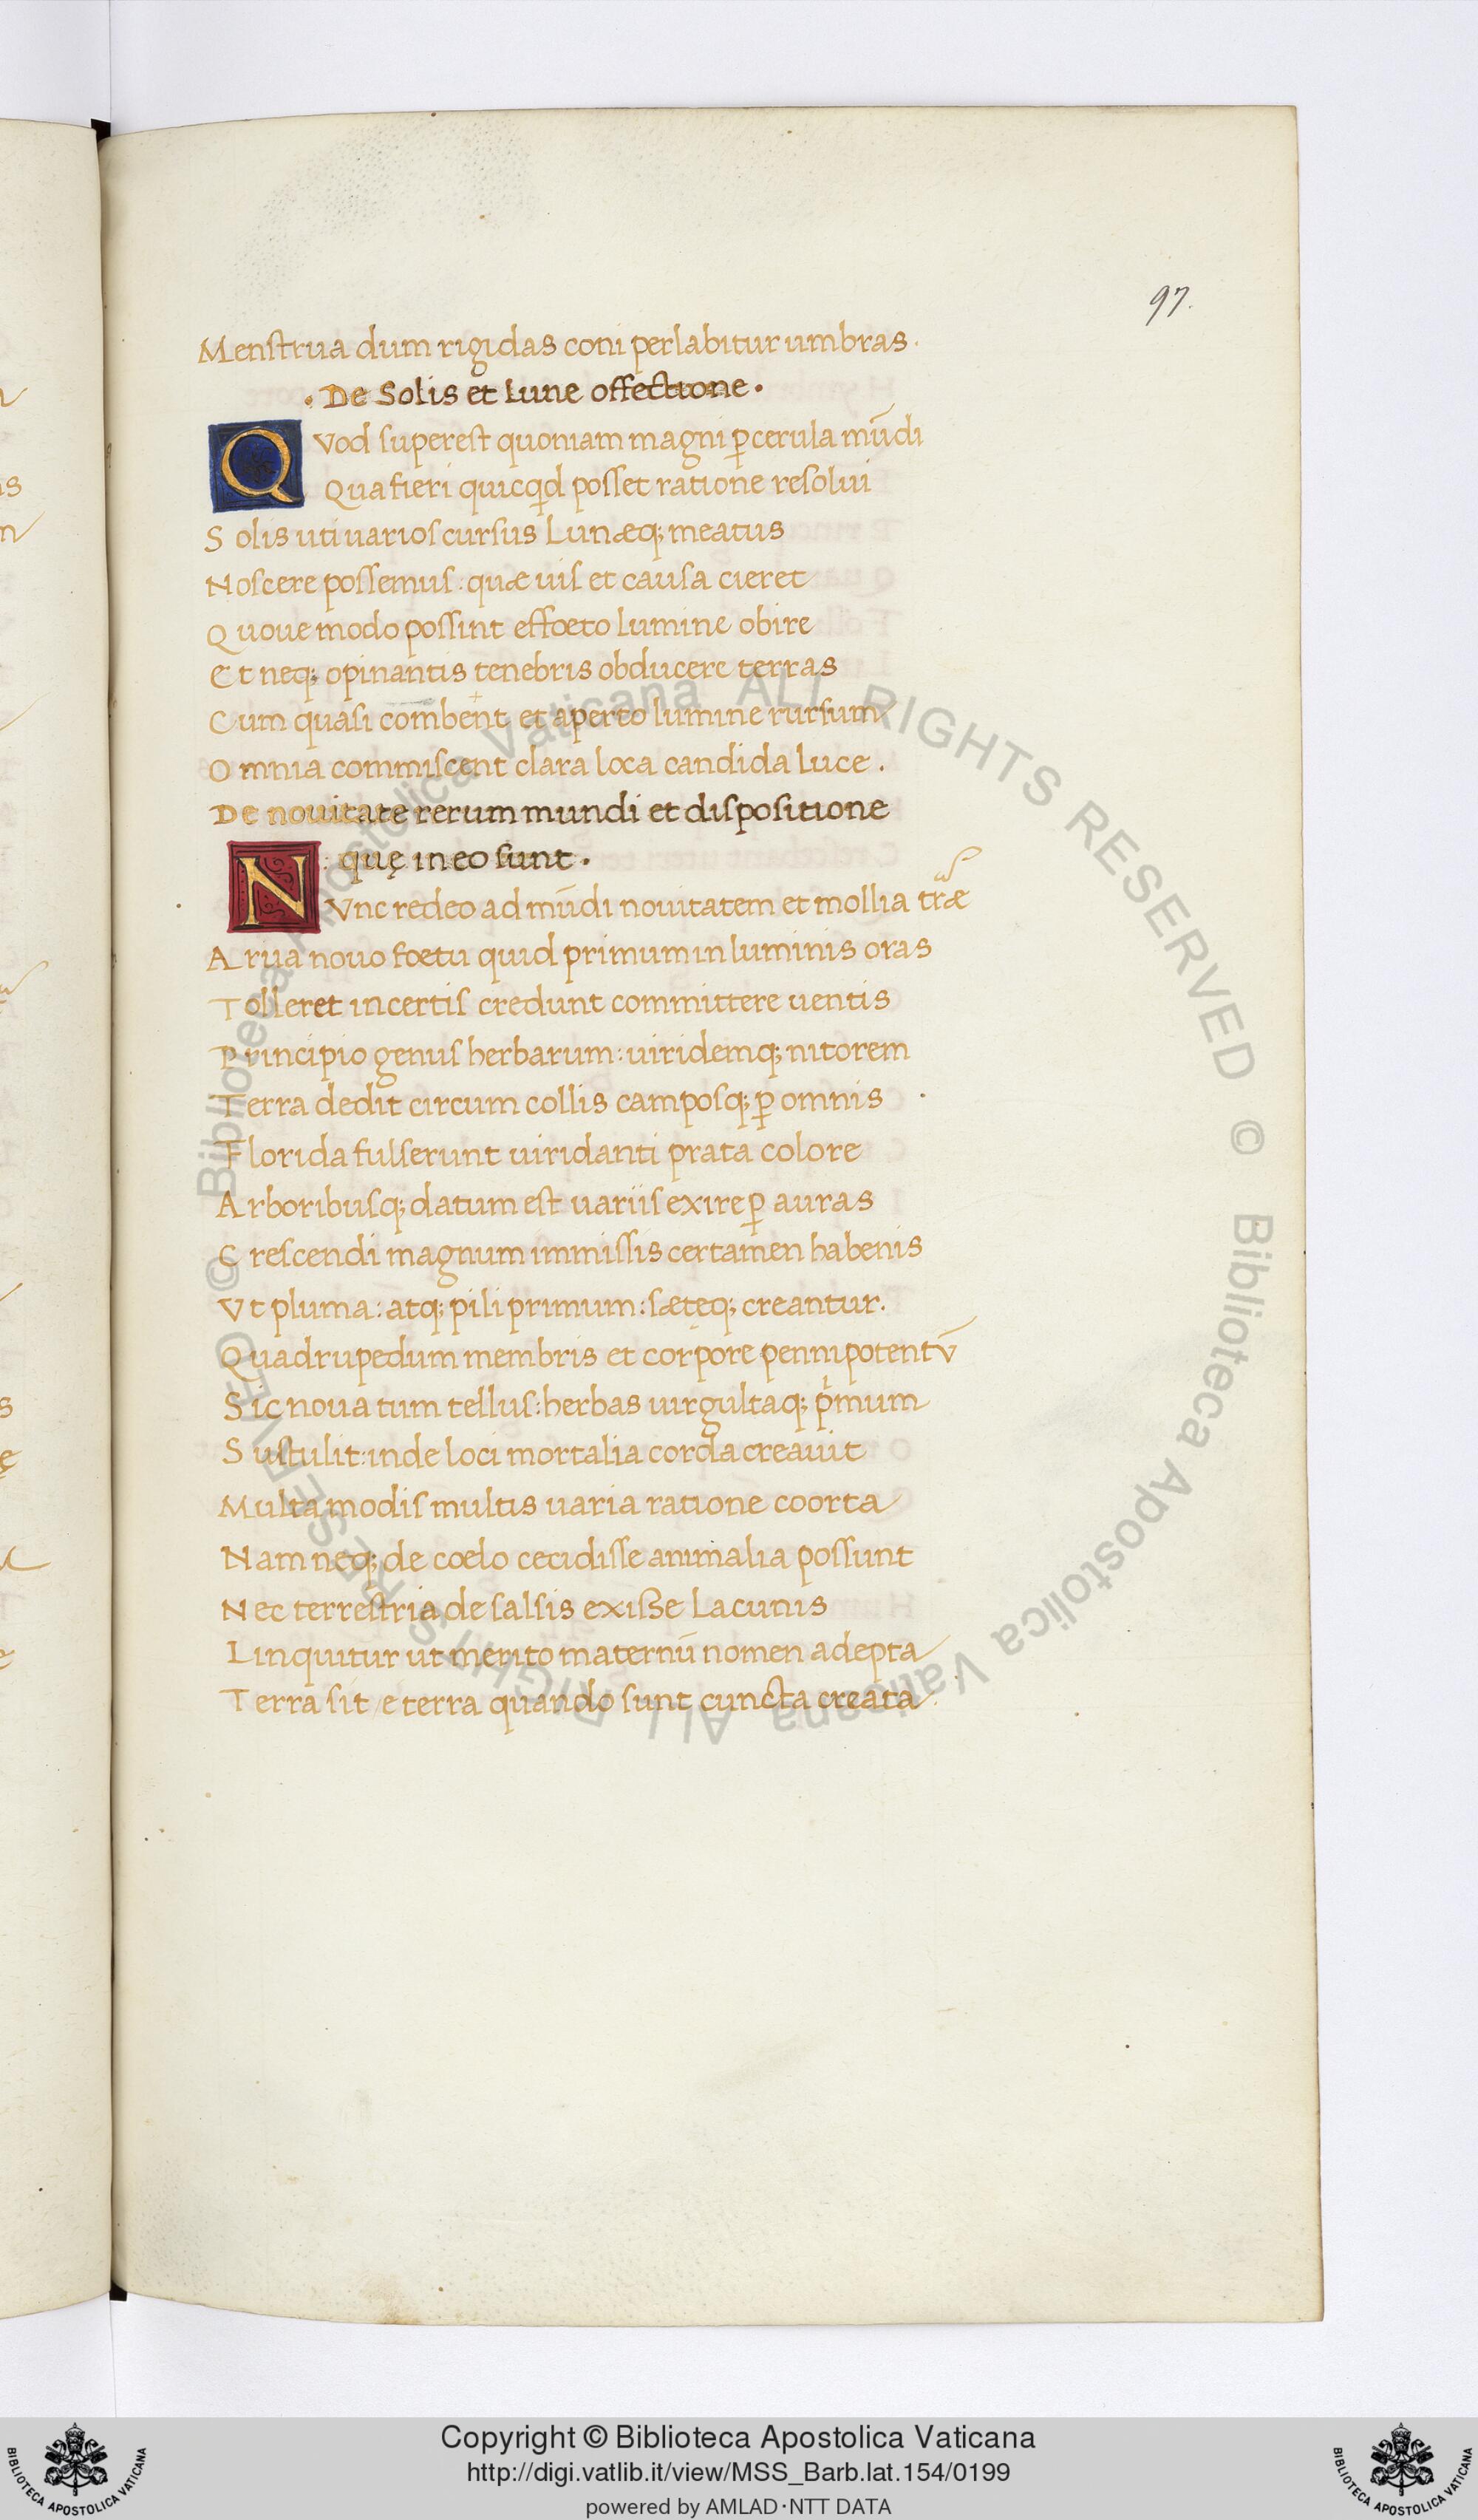 97.
Menstrua dum rigidas coni perlabitur umbras.
. De Solis et Lune offectione.
QVod superest quoniam magni ꝑ cerula mūdi
Qua fieri quicqͥd posset ratione resolui
Solis uti uarios cursus Lunæq; meatus
Noscere possemus: quæ uis et causa cieret
Quoue modo possint effoeto lumine obire
Et neq; opinantis tenebris obducere terras
Cum quasi combent et aperto lumine rursum
Omnia commiscent clara loca candida luce.
De nouitate rerum mundi et dispositione
: quę in eo sunt.
NVnc redeo ad mūdi nouitatem et mollia træ
Arua nouo foetu quid primum in luminis oras
Tolleret incertis credunt committere uentis
Principio genus herbarum: uiridemq; nitorem
Terra dedit circum collis camposq; ꝑ omnis
Florida fulserunt uiridanti prata colore
Arboribusq; datum est uariis exire ꝑ auras
Crescendi magnum immissis certamen habenis
Vt pluma: atq; pili primum: sæteq; creantur.
Quadrupedum membris et corpore pennipotentū
Sic noua tum tellus: herbas uirgultaq; pͥmum
Sustulit: inde loci mortalia corda creauit
Multa modis multis uaria ratione coorta
Nam neq; de coelo cecidisse animalia possunt
Nec terrestria de salsis exisse Lacunis
Linquitur ut merito maternū nomen adepta
Terra sit / e terra quando sunt cuncta creata.
© Biblioteca Apostolica Vaticana ALL RIGHTS RESERVED © Biblioteca Apostolica Vaticana ALL RIGHTS RESERVED
Copyright © Biblioteca Apostolica Vaticana
http://digi.vatlib.it/view/MSS_Barb.lat.154/0199
powered by AMLAD·NTT DATA
BIBLIOTECA APOSTOLICA VATICANA
BIBLIOTECA APOSTOLICA VATICANA